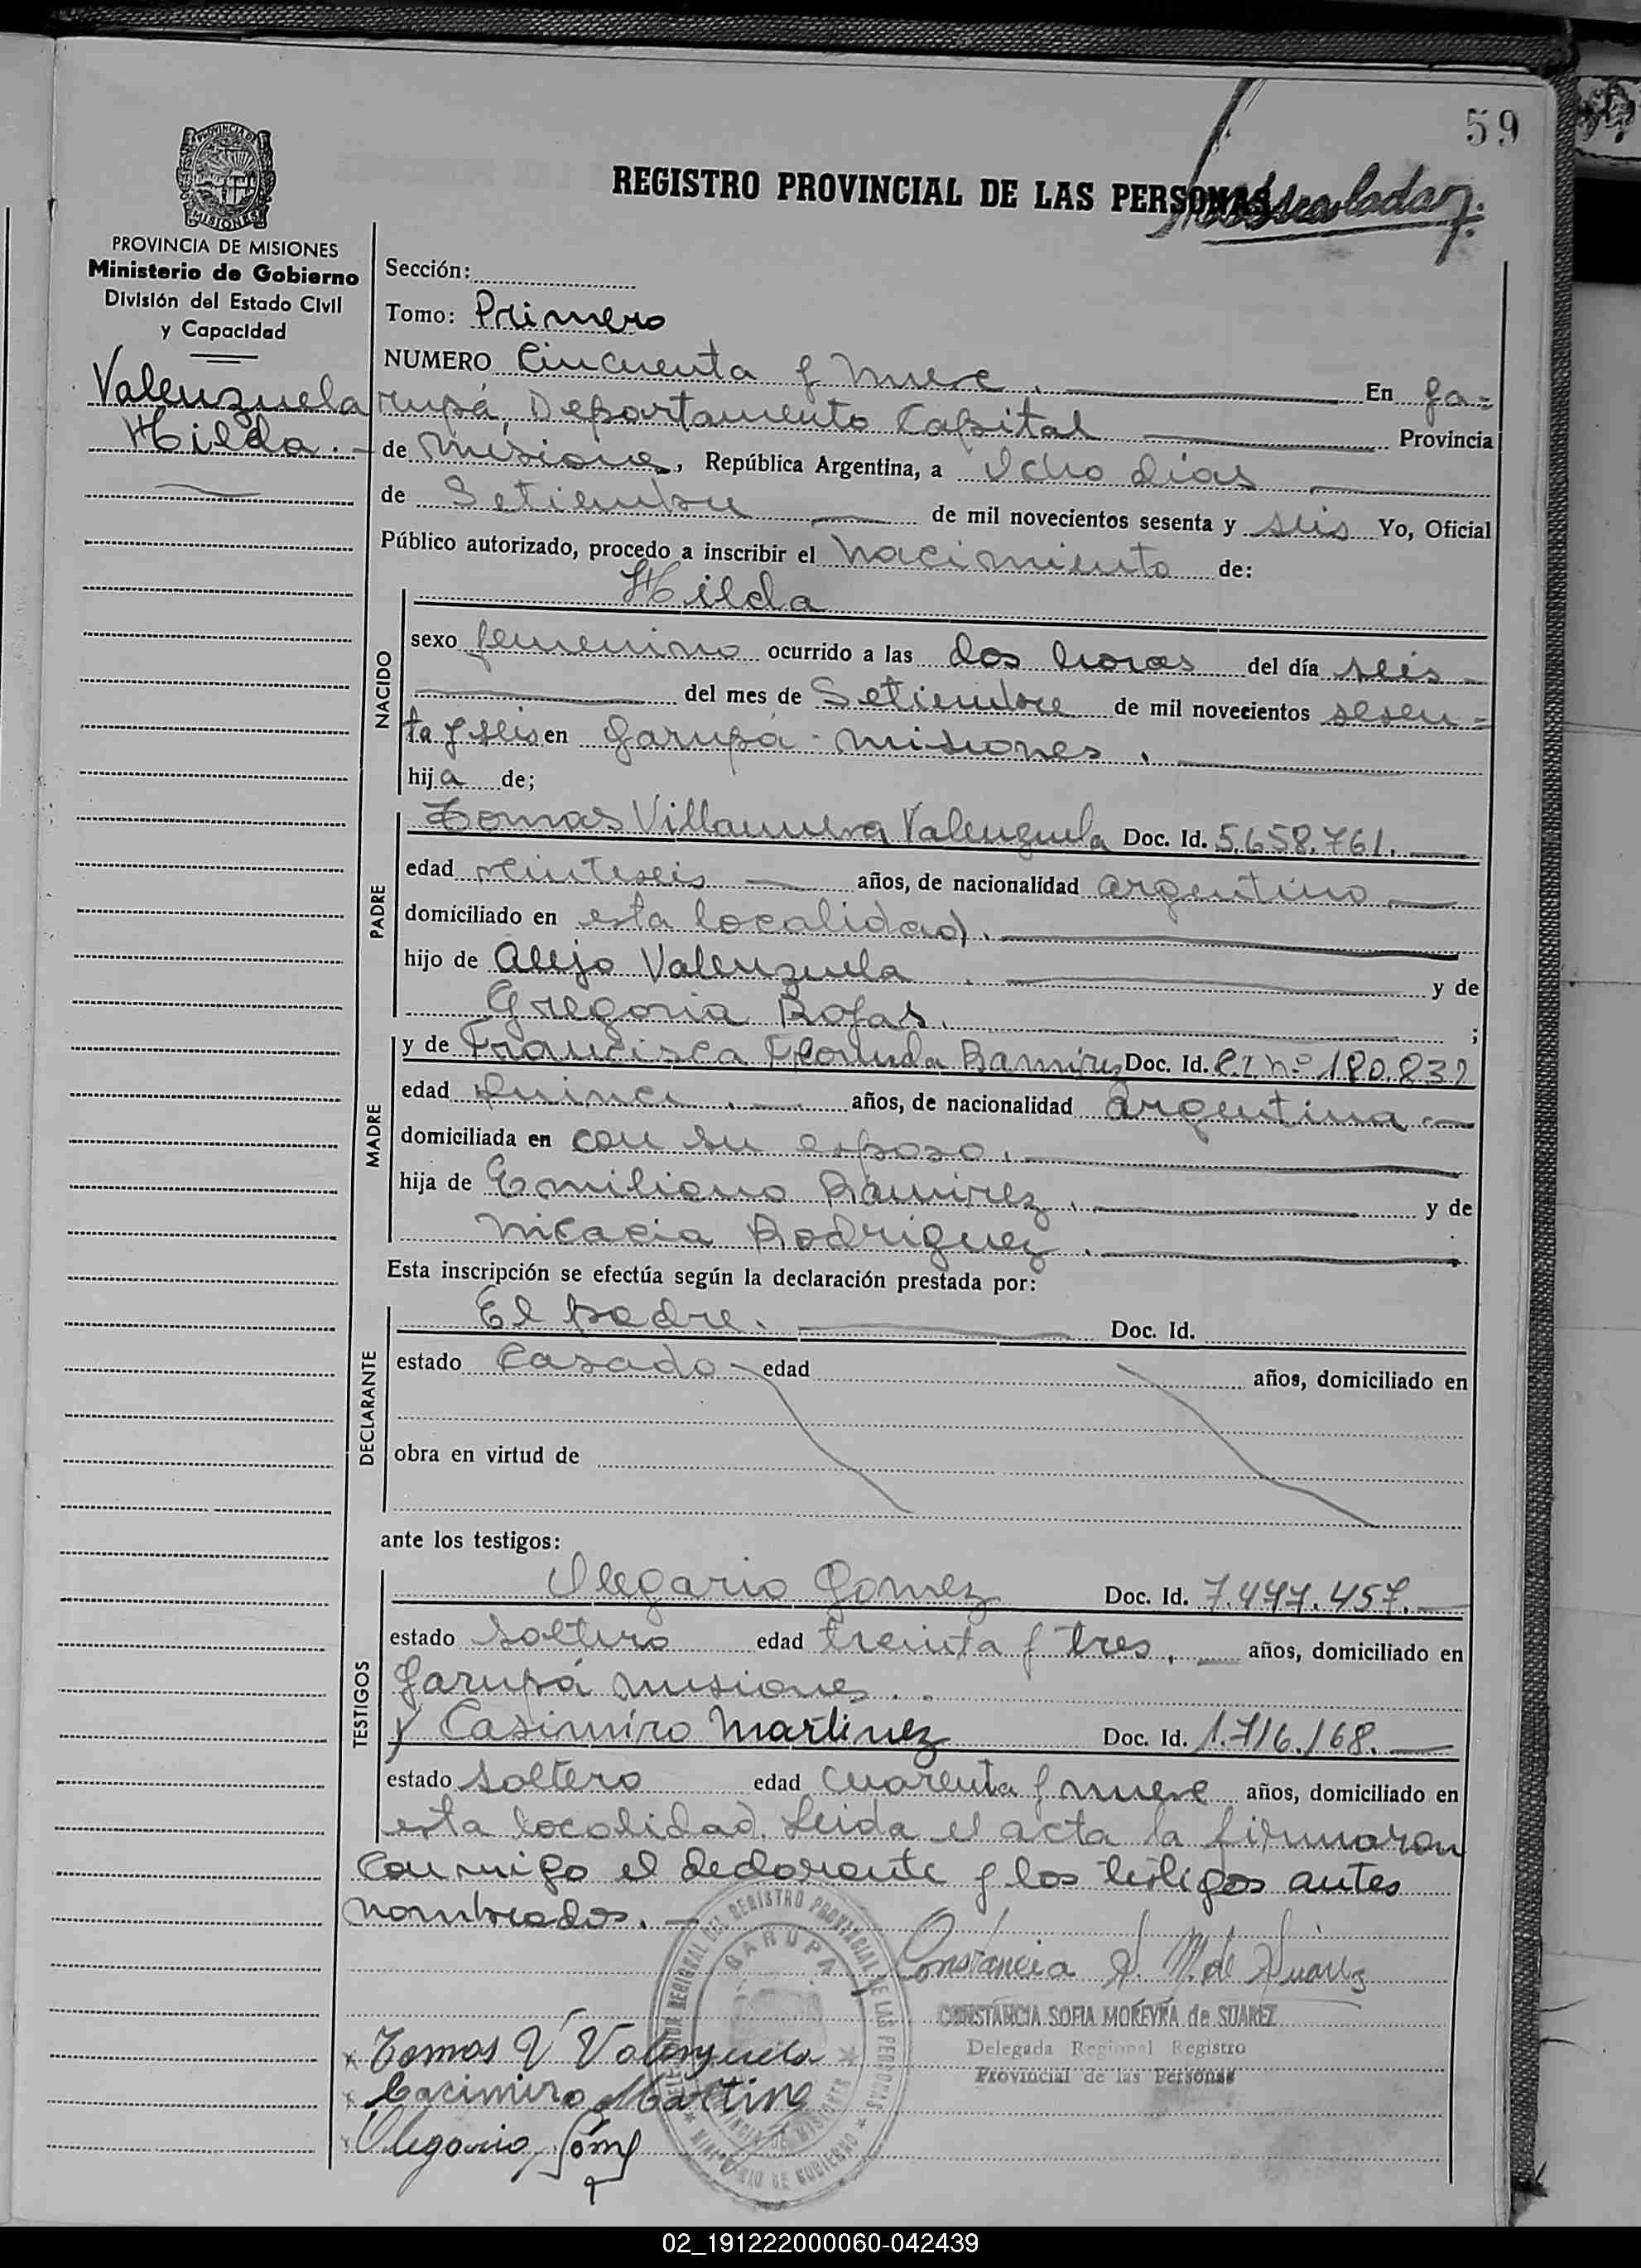 59
REGISTRO PROVINCIAL DE LAS PERSONAS
MISIONES
PROVINCIA DE MISIONES
Ministerio de Gobierno
División del Estado Civil
y Capacidad
Valenzuela
Hilda.-
Sección:
Tomo: Primero
NUMERO Cincuenta y nueve. En Ga=
rupá, Departamento Capital Provincia
de Misiones, República Argentina, a Ocho días
de Setiembre de mil novecientos sesenta y seis Yo, Oficial
Público autorizado, procedo a inscribir el nacimiento de:
NACIDO
Hilda
sexo femenino ocurrido a las dos horas del día seis
del mes de Setiembre de mil novecientos sesen=
ta y seis en Garupá - Misiones.
hija de;
PADRE
Tomas Villanueva Valenzuela Doc. Id. 5.658.761.
edad veintiseis años, de nacionalidad argentino
domiciliado en esta localidad.
hijo de Alejo Valenzuela y de
Gregoria Rojas. ;
MADRE
y de Francisca Ramires Doc. Id. C.I. nº 180.832
edad quince. años, de nacionalidad Argentina
domiciliada en con su esposo.
hija de Emiliano Ramirez. y de
Nicacia Rodriguez.
Esta inscripción se efectúa según la declaración prestada por:
DECLARANTE
El padre. Doc. Id.
estado Casado edad años, domiciliado en
obra en virtud de
ante los testigos:
TESTIGOS
Olegario Gomez Doc. Id. 7.477.457.
estado soltero edad treinta y tres. años, domiciliado en
Garupá Misiones.
y Casimiro Martinez Doc. Id. 1.716.168.
estado soltero edad cuarenta y nueve años, domiciliado en
esta localidad. Leida el acta la firmaron
conmigo el declarante y los testigos antes
nombrados.
Constancia S. M. de Suárez
CONSTANCIA SOFIA MOREYRA de SUAREZ
Delegada Regional Registro
Provincial de las Personas
GARUPA
Tomas V Valenzuela
Casimiro Martine
Olegario Gomez
02_191222000060-042439